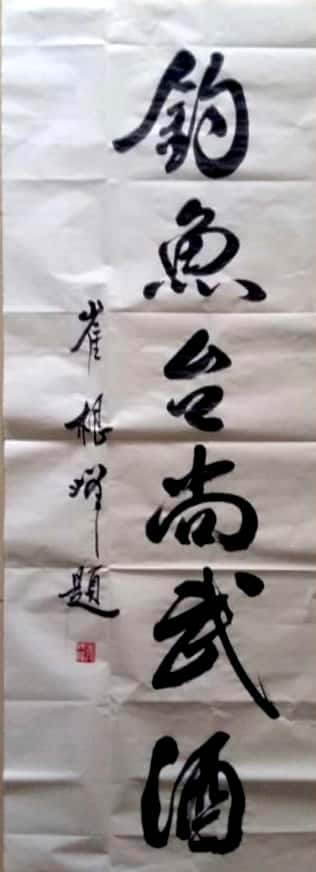 釣魚台尚武酒
崔根輝題